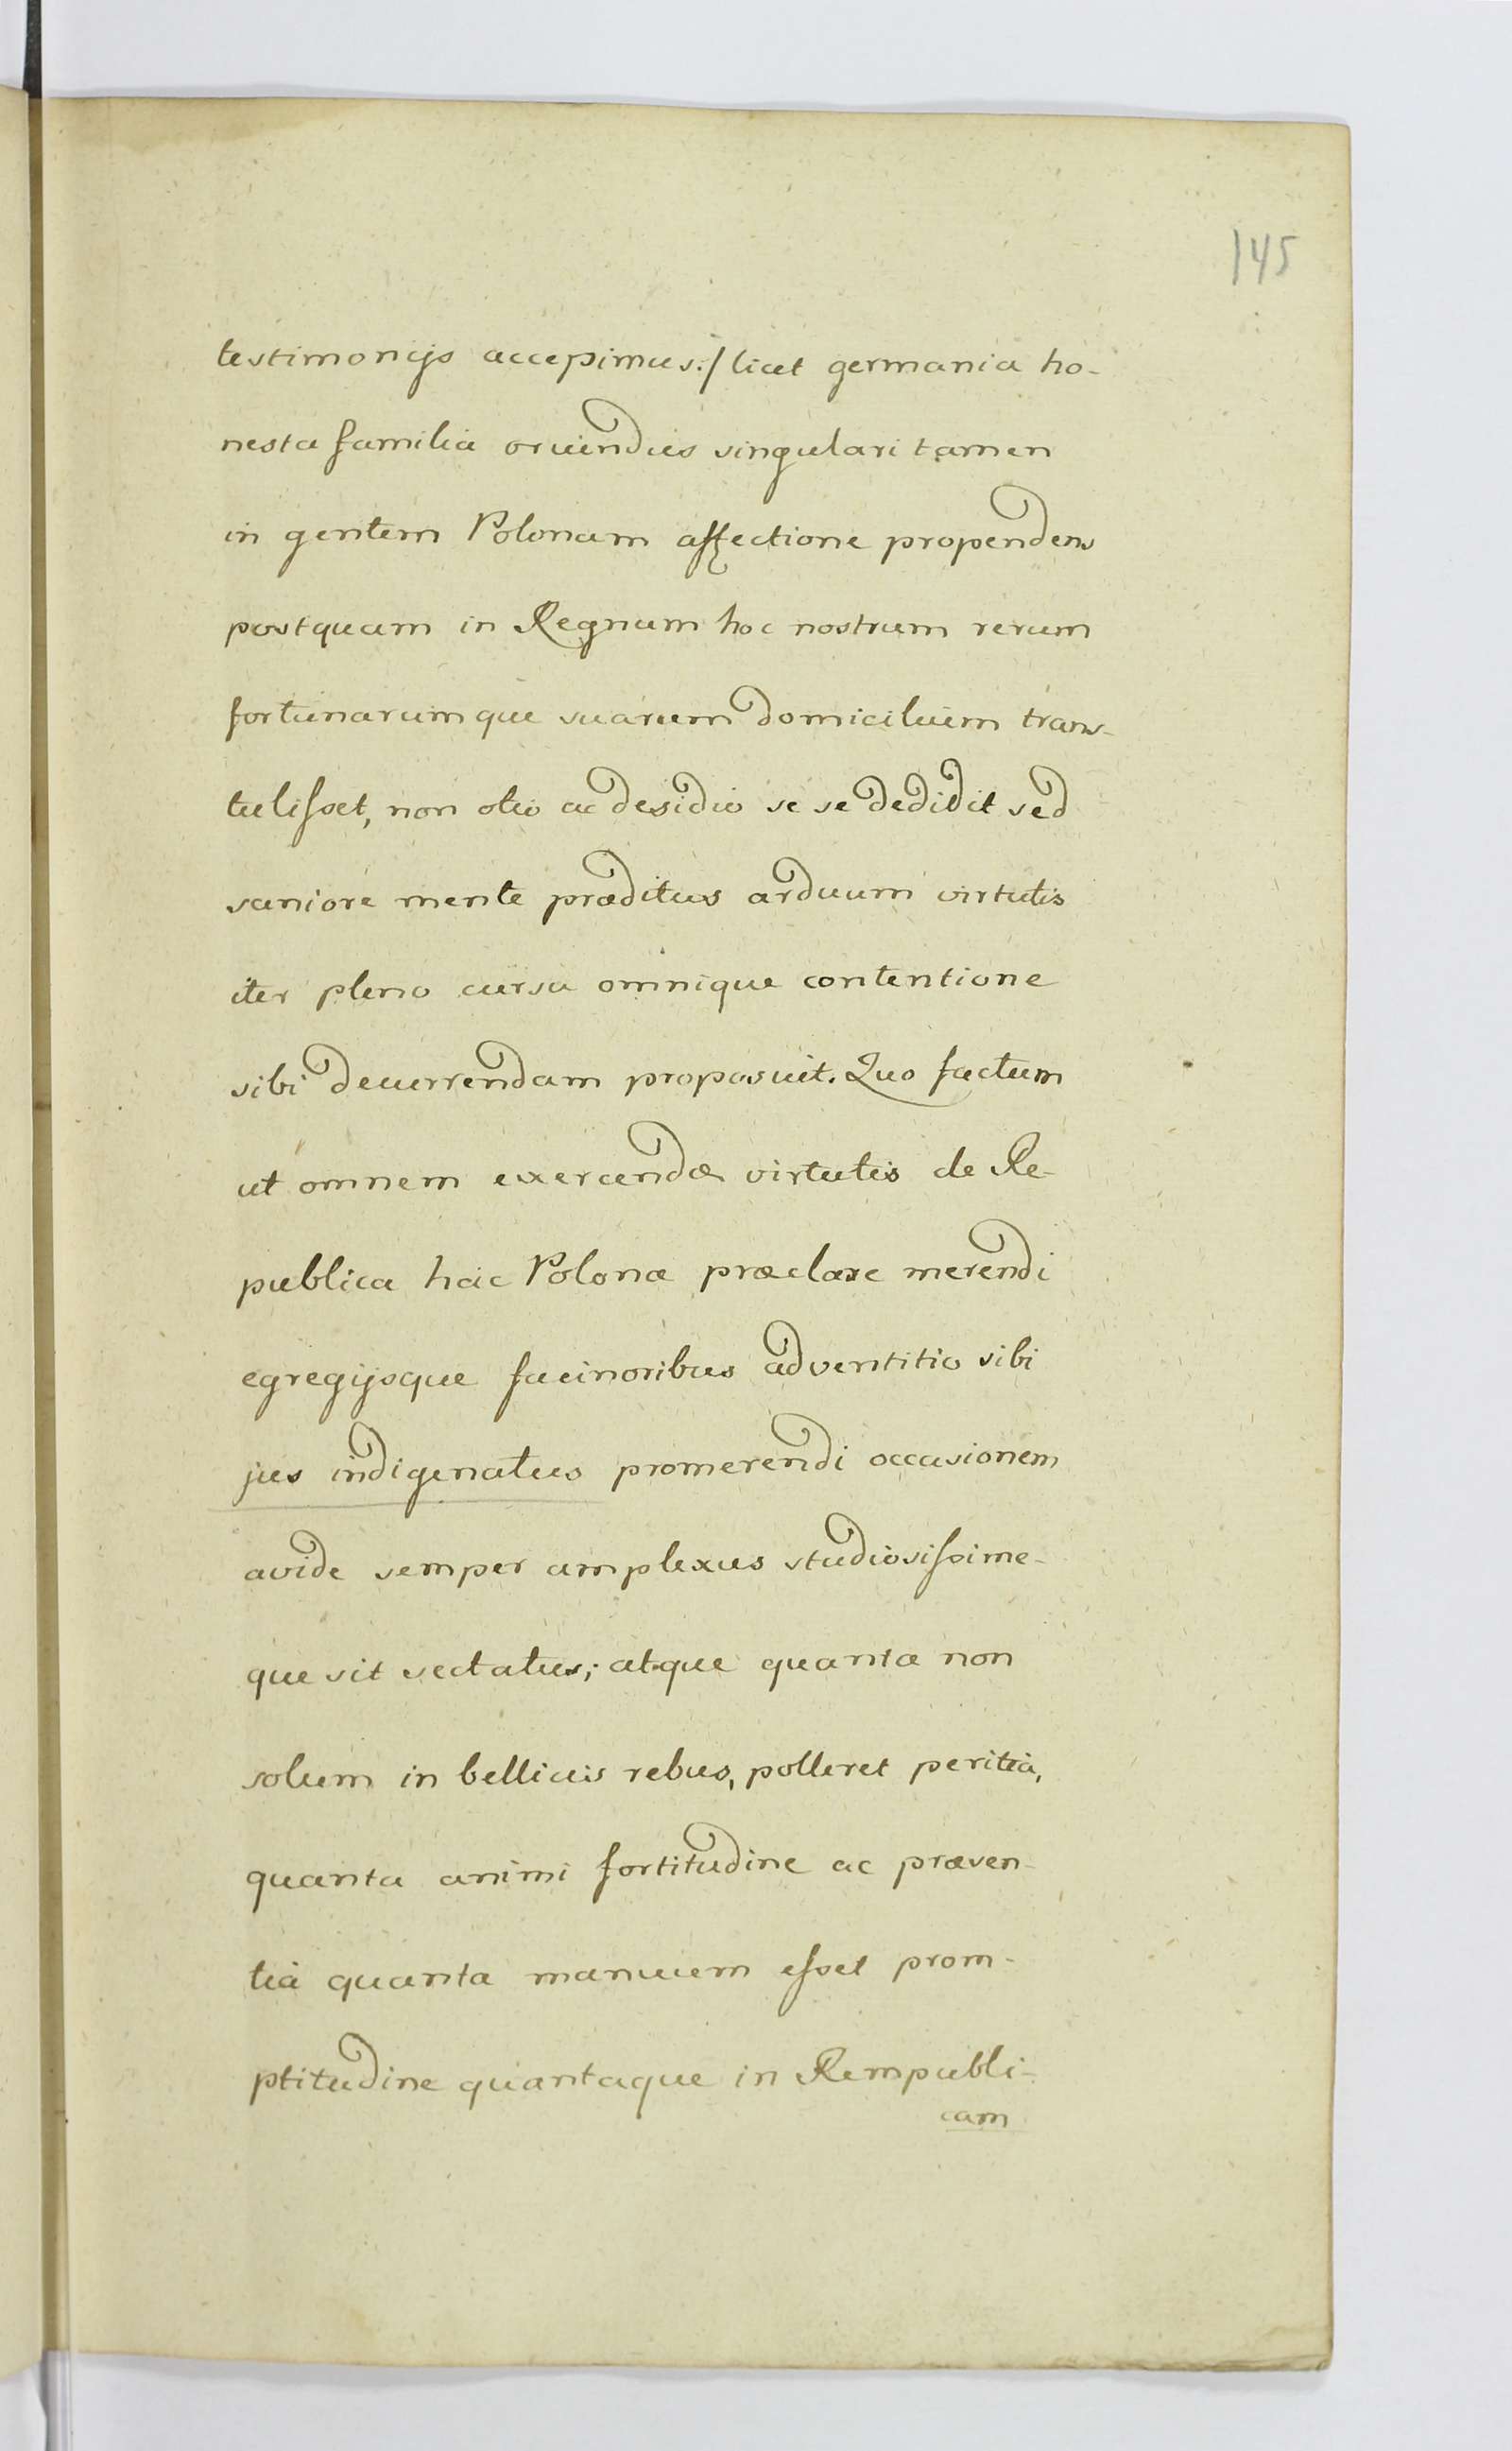 145
testimonijs accepimus:/ licet germania ho-
nesta familia oriundus singulari tamen
in gentem Polonam affectione propendens
postquam in Regnum hoc nostrum rerum
fortunarumque suarum domicilium trans-
tulisset, non otio ac desidio se se dedidit sed
saniore mente præditus arduum virtutis
iter pleno cursu omnique contentione
sibi decurrendam proposuit. Quo factum
ut omnem exercendæ virtutis de Re-
publica hac Polonæ præclare merendi
egregijsque facinoribus adventitio sibi
jus indigenatus promerendi occasionem
avide semper amplexus studiosissime-
que sit sectatus; atque quanta non
solum in bellicis rebus, polleret peritia,
quanta animi fortitudine ac præsen-
tia quanta manuum esset prom-
ptitudine quantaque in Rempubli-
cam